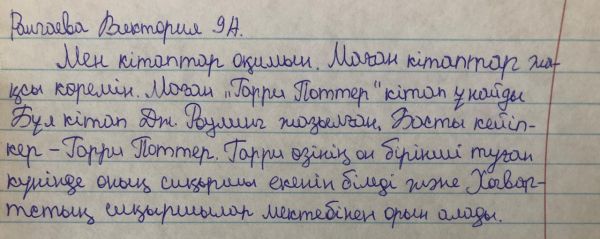 Волгаева Виктория 9А.
Мен кітаптар оқимын. Маған кітаптар жа-
қсы көремін. Маған „Гарри Поттер" кітап ұнайды
Бұл кітап Дж. Роулинг жазылған. Басты кейіп-
кер – Гарри Поттер. Гарри өзінің он бірінші туған
күнінде оның сиқыршы екенін біледі және Хогвар-
тстың сиқыршылар мектебінен орын алады.